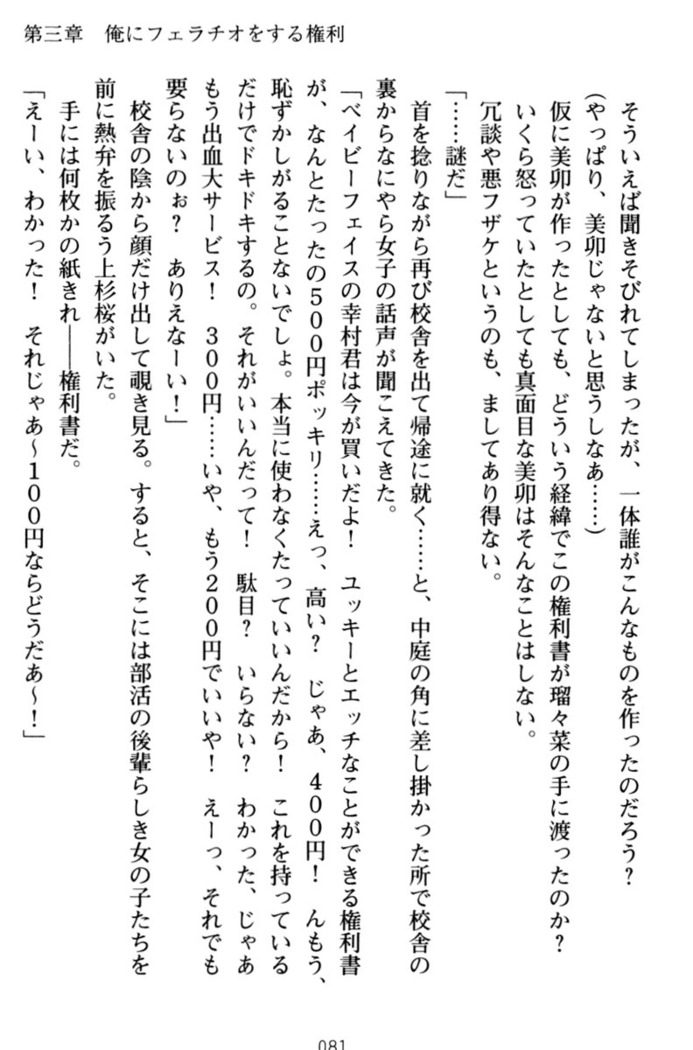 第三章　俺にフェラチオをする権利
そういえば聞きそびれてしまったが、一体誰がこんなものを作ったのだろう？
（やっぱり、美卯じゃないと思うしなぁ……）
仮に美卯が作ったとしても、どういう経緯でこの権利書が瑠々菜の手に渡ったのか？
いくら怒っていたとしても真面目な美卯はそんなことはしない。
冗談や悪フザケというのも、ましてあり得ない。
「……謎だ」
首を捻りながら再び校舎を出て帰途に就く……と、中庭の角に差し掛かった所で校舎の
裏からなにやら女子の話声が聞こえてきた。
「ベイビーフェイスの幸村君は今が買いだよ！　ユッキーとエッチなことができる権利書
が、なんとたったの５００円ポッキリ……えっ、高い？　じゃあ、４００円！　んもう、
恥ずかしがることないでしょ。本当に使わなくたっていいんだから！　これを持っている
だけでドキドキするの。それがいいんだって！　駄目？　いらない？　わかった、じゃあ
もう出血大サービス！　３００円……いや、もう２００円でいいや！　えーっ、それでも
要らないのぉ？　ありえなーい！」
校舎の陰から顔だけ出して覗き見る。すると、そこには部活の後輩らしき女の子たちを
前に熱弁を振るう上杉桜がいた。
手には何枚かの紙きれ――権利書だ。
「えーい、わかった！　それじゃあ～１００円ならどうだぁ～！」
081